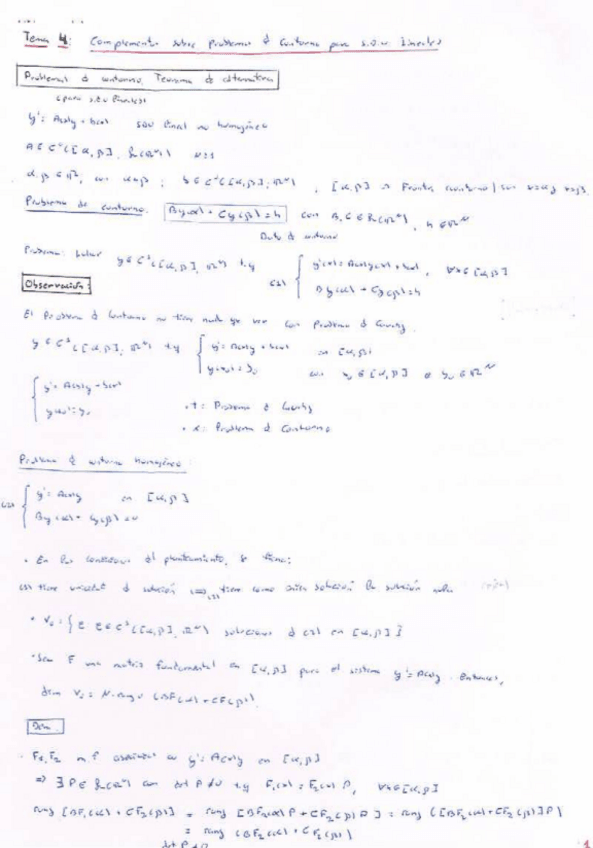 Tema 4: Complementos sobre Problemas d Contorno para S.D.O. lineales
Problemas d contorno. Teorema de alternativa
(para s.d.o lineales)
y' = A(x)y + b(x) SDO lineal no homogéneo
A ∈ C⁰([α,β], L(ℝᴺ)) N≥1
α, β ∈ ℝ, con α<β ; b ∈ C⁰([α,β]; ℝᴺ) , [α,β] Frontera (contorno) son x=α y x=β.
Problema de contorno. By(α) + Cy(β) = h con B, C ∈ L(ℝᴺ), h ∈ ℝᴺ
Dato d contorno
Problema: hallar y ∈ C¹([α,β], ℝᴺ) t.q (2) { y'(x) = A(x)y(x) + b(x), ∀x ∈ [α,β]
By(α) + Cy(β) = h
Observación:
El Problema d Contorno no tiene nada que ver con Problema d Cauchy.
y ∈ C¹([α,β], ℝᴺ) t.q { y' = A(x)y + b(x) en [α,β]
y(x₀) = y₀ con x₀ ∈ [α,β] y₀ ∈ ℝᴺ
{ y' = A(x)y + b(x)
y(x₀) = y₀
• t: Problema d Cauchy
• x: Problema d Contorno
Problema d contorno Homogéneo:
{ y' = A(x)y en [α,β]
By(α) + Cy(β) = 0
• En las condiciones del planteamiento, se tiene:
tiene unicidad d solución ⟺ tiene como única solución la solución nula
• V₀ = { z: z ∈ C¹([α,β], ℝᴺ) solución d en [α,β] }
• Sea F una matriz fundamental en [α,β] para el sistema y' = A(x)y. Entonces,
dim V₀ = N - rang (BF(α) + CF(β))
Dem.
F₁, F₂ m.f asociadas a y' = A(x)y en [α,β]
⇒ ∃ P ∈ L(ℝᴺ) con det P ≠ 0 t.q F₁(x) = F₂(x) P, ∀x ∈ [α,β]
rang [BF₁(α) + CF₁(β)] = rang [BF₂(α) P + CF₂(β) P] = rang ([BF₂(α) + CF₂(β)] P)
= rang (BF₂(α) + CF₂(β))
det P ≠ 0
1